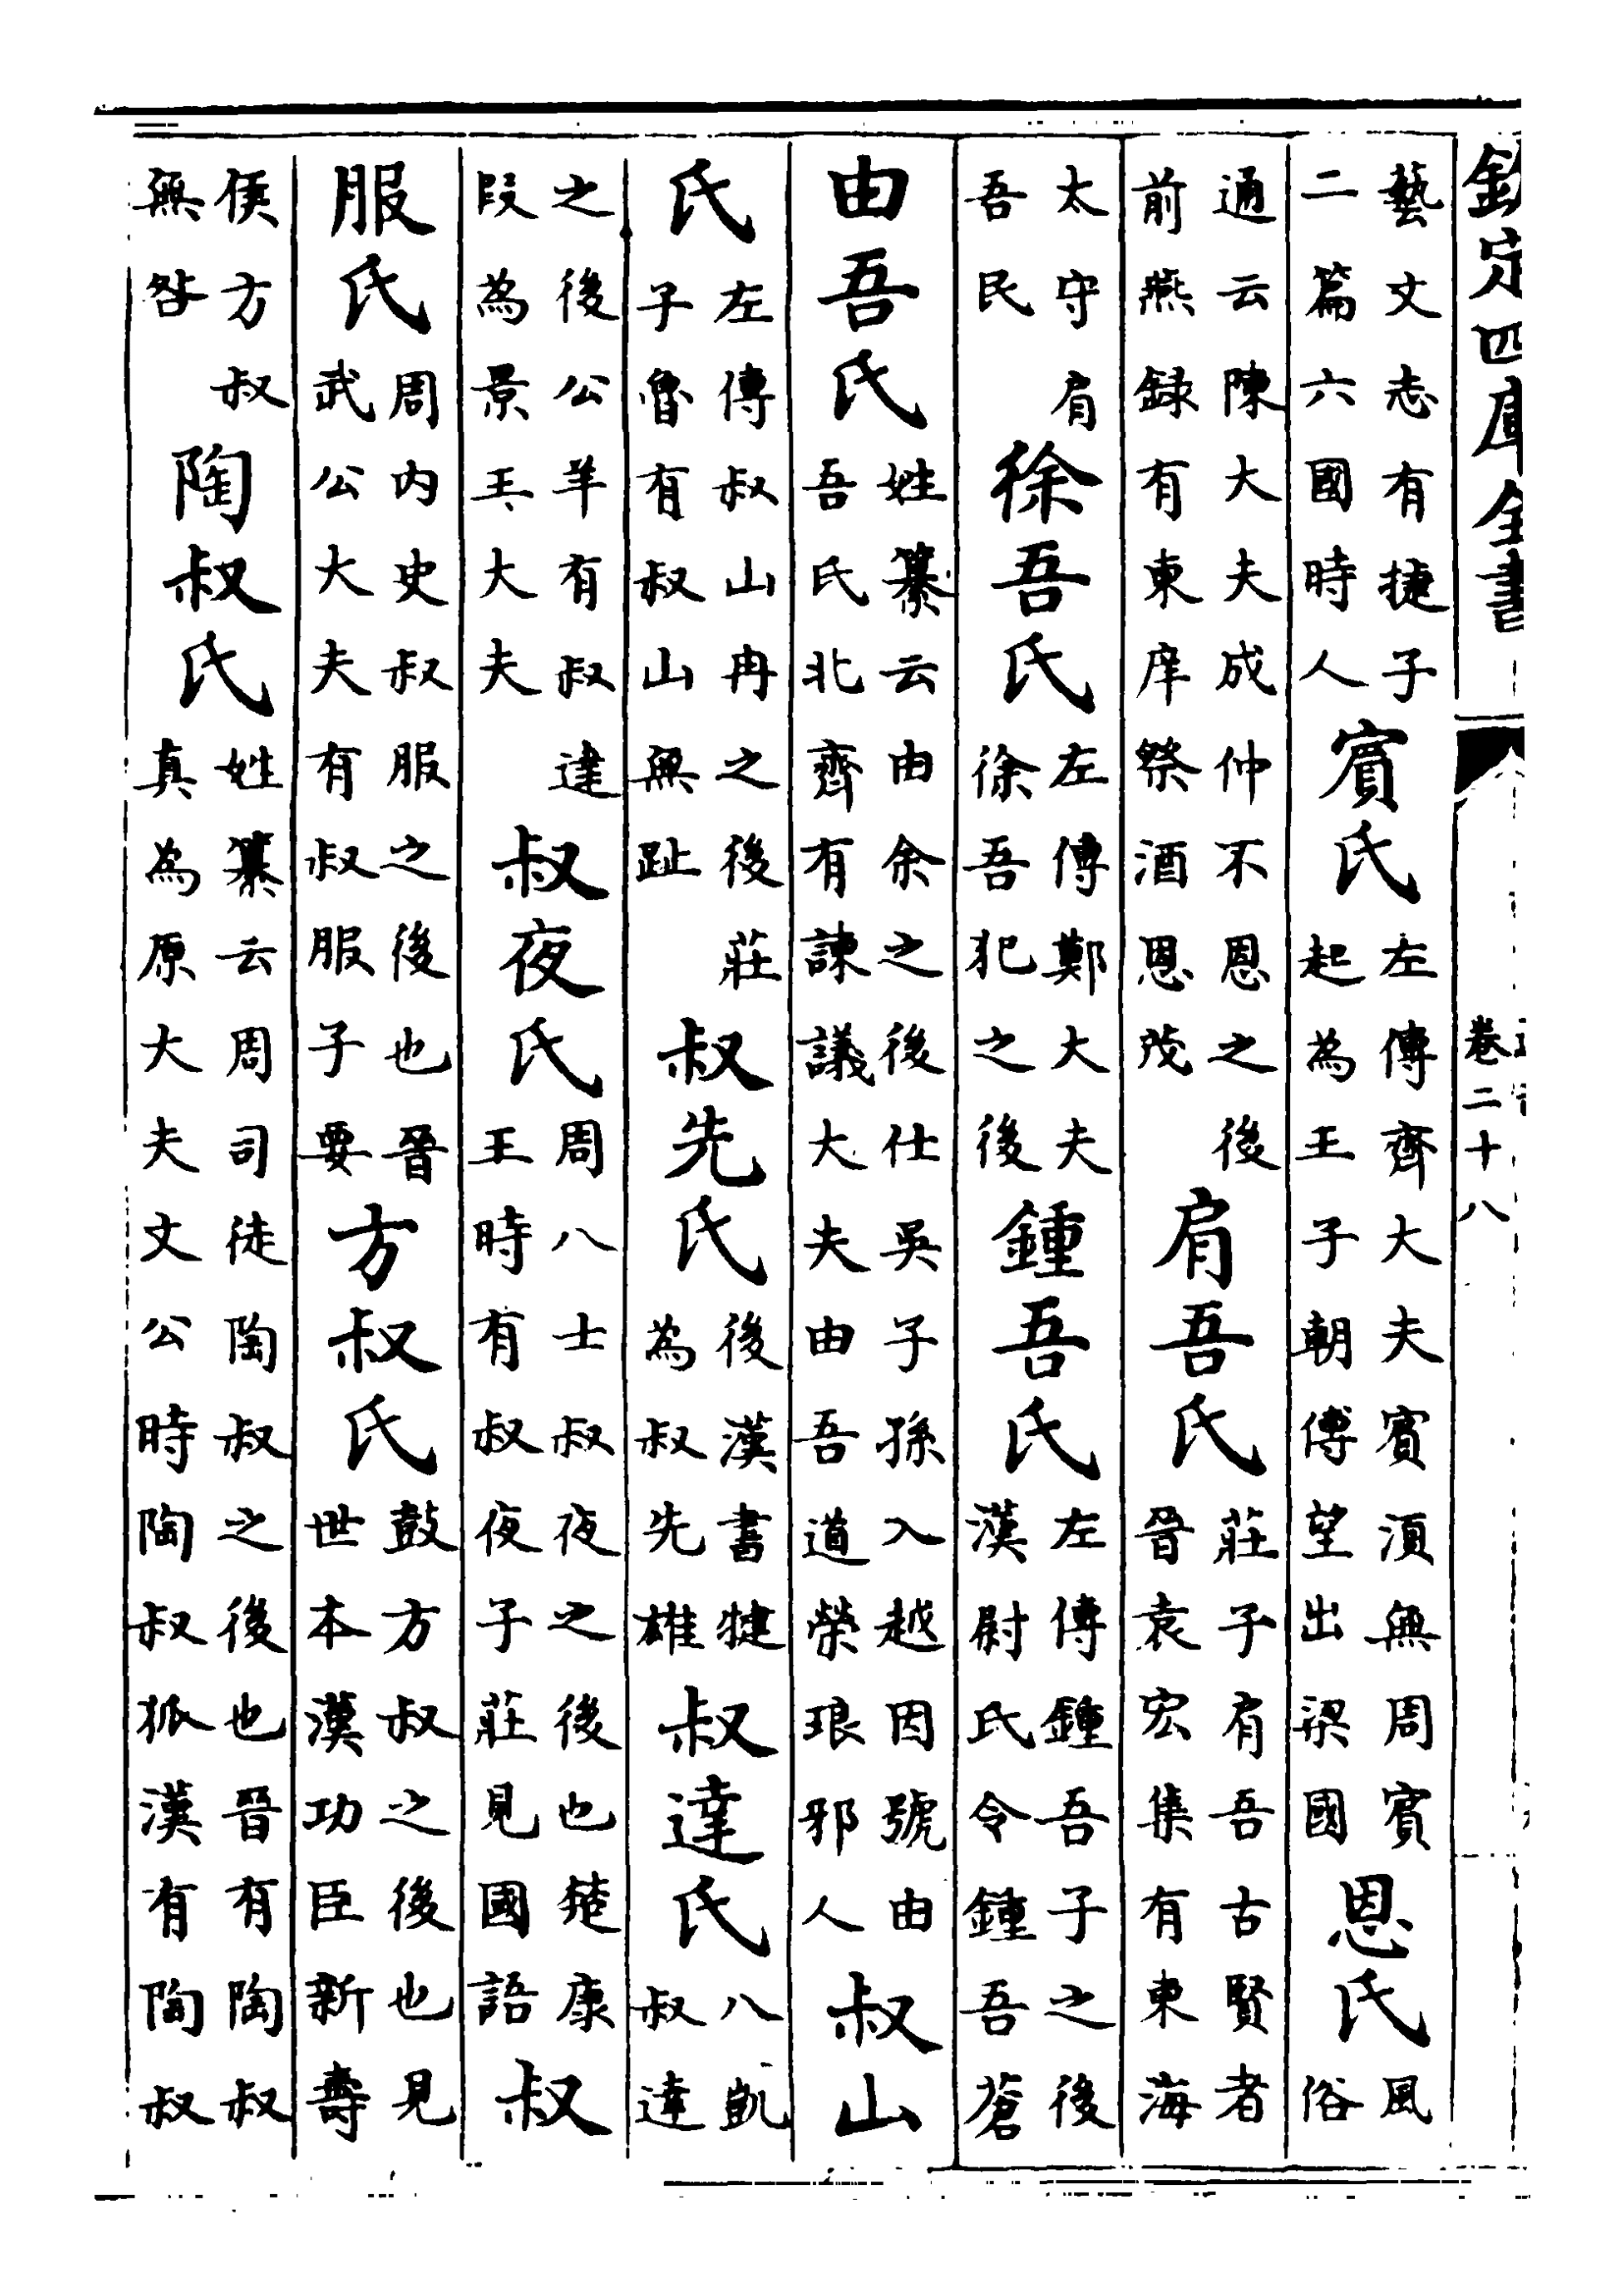 欽定四庫全書 卷二十八
藝文志有捷子二篇六國時人賓氏左傳齊大夫賓湏無周賓起為王子朝傅望出梁國恩氏風俗
通云陳大夫成仲不恩之後前燕録有東庠祭酒恩茂肩吾氏莊子肩吾古賢者晉袁宏集有東海
太守肩吾民徐吾氏左傳鄭大夫徐吾犯之後鍾吾氏左傳鍾吾子之後漢尉氏令鍾吾蒼
由吾氏姓纂云由余之後仕吳子孫入越因號由吾氏北齊有諫議大夫由吾道榮琅邪人叔山
氏左傳叔山冉之後莊子魯有叔山無趾叔先氏後漢書犍為叔先雄叔達氏八凱叔達
之後公羊有叔達段為景王大夫叔夜氏周八士叔夜之後也楚康王時有叔夜子莊見國語叔
服氏周内史叔服之後也晉武公大夫有叔服子要方叔氏鼓方叔之後也見世本漢功臣新壽
侯方叔無咎陶叔氏姓纂云周司徒陶叔之後也晉有陶叔真為原大夫文公時陶叔狐漢有陶叔